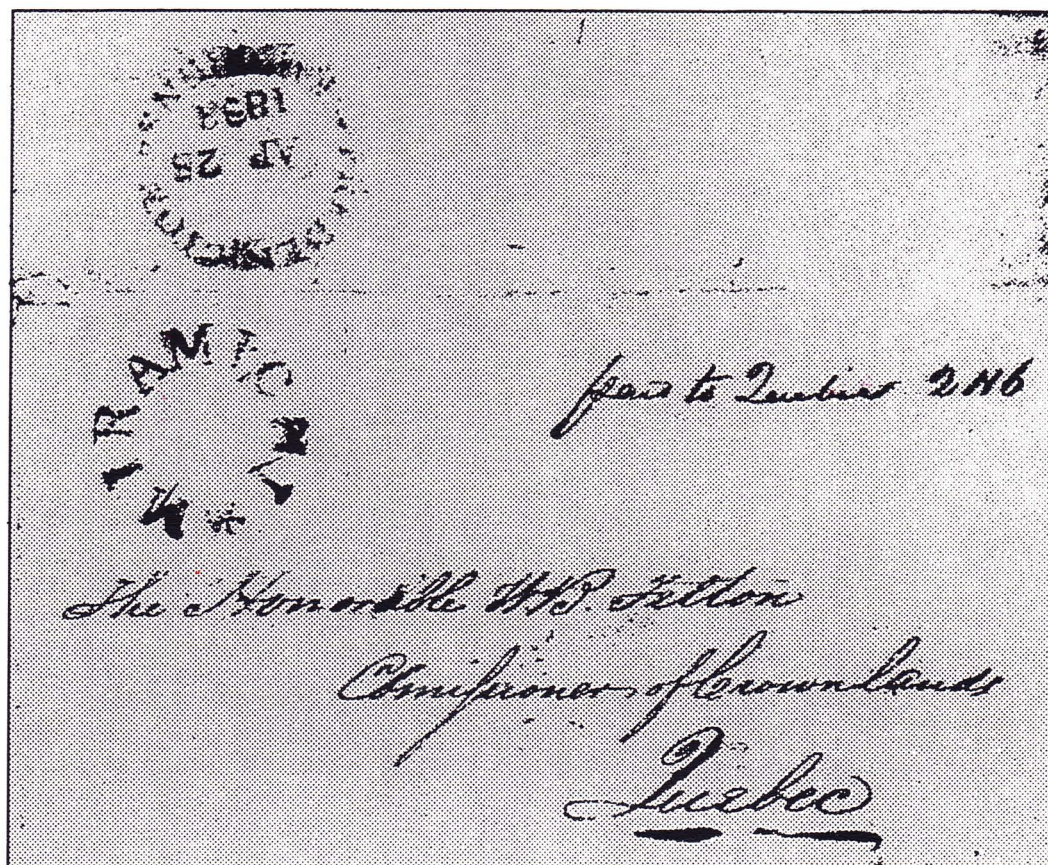 AP
MIRAMICHI *
paid to Quebec 2N6
The Honorable W.B. Felton
Commissioner of Crown Lands
Quebec